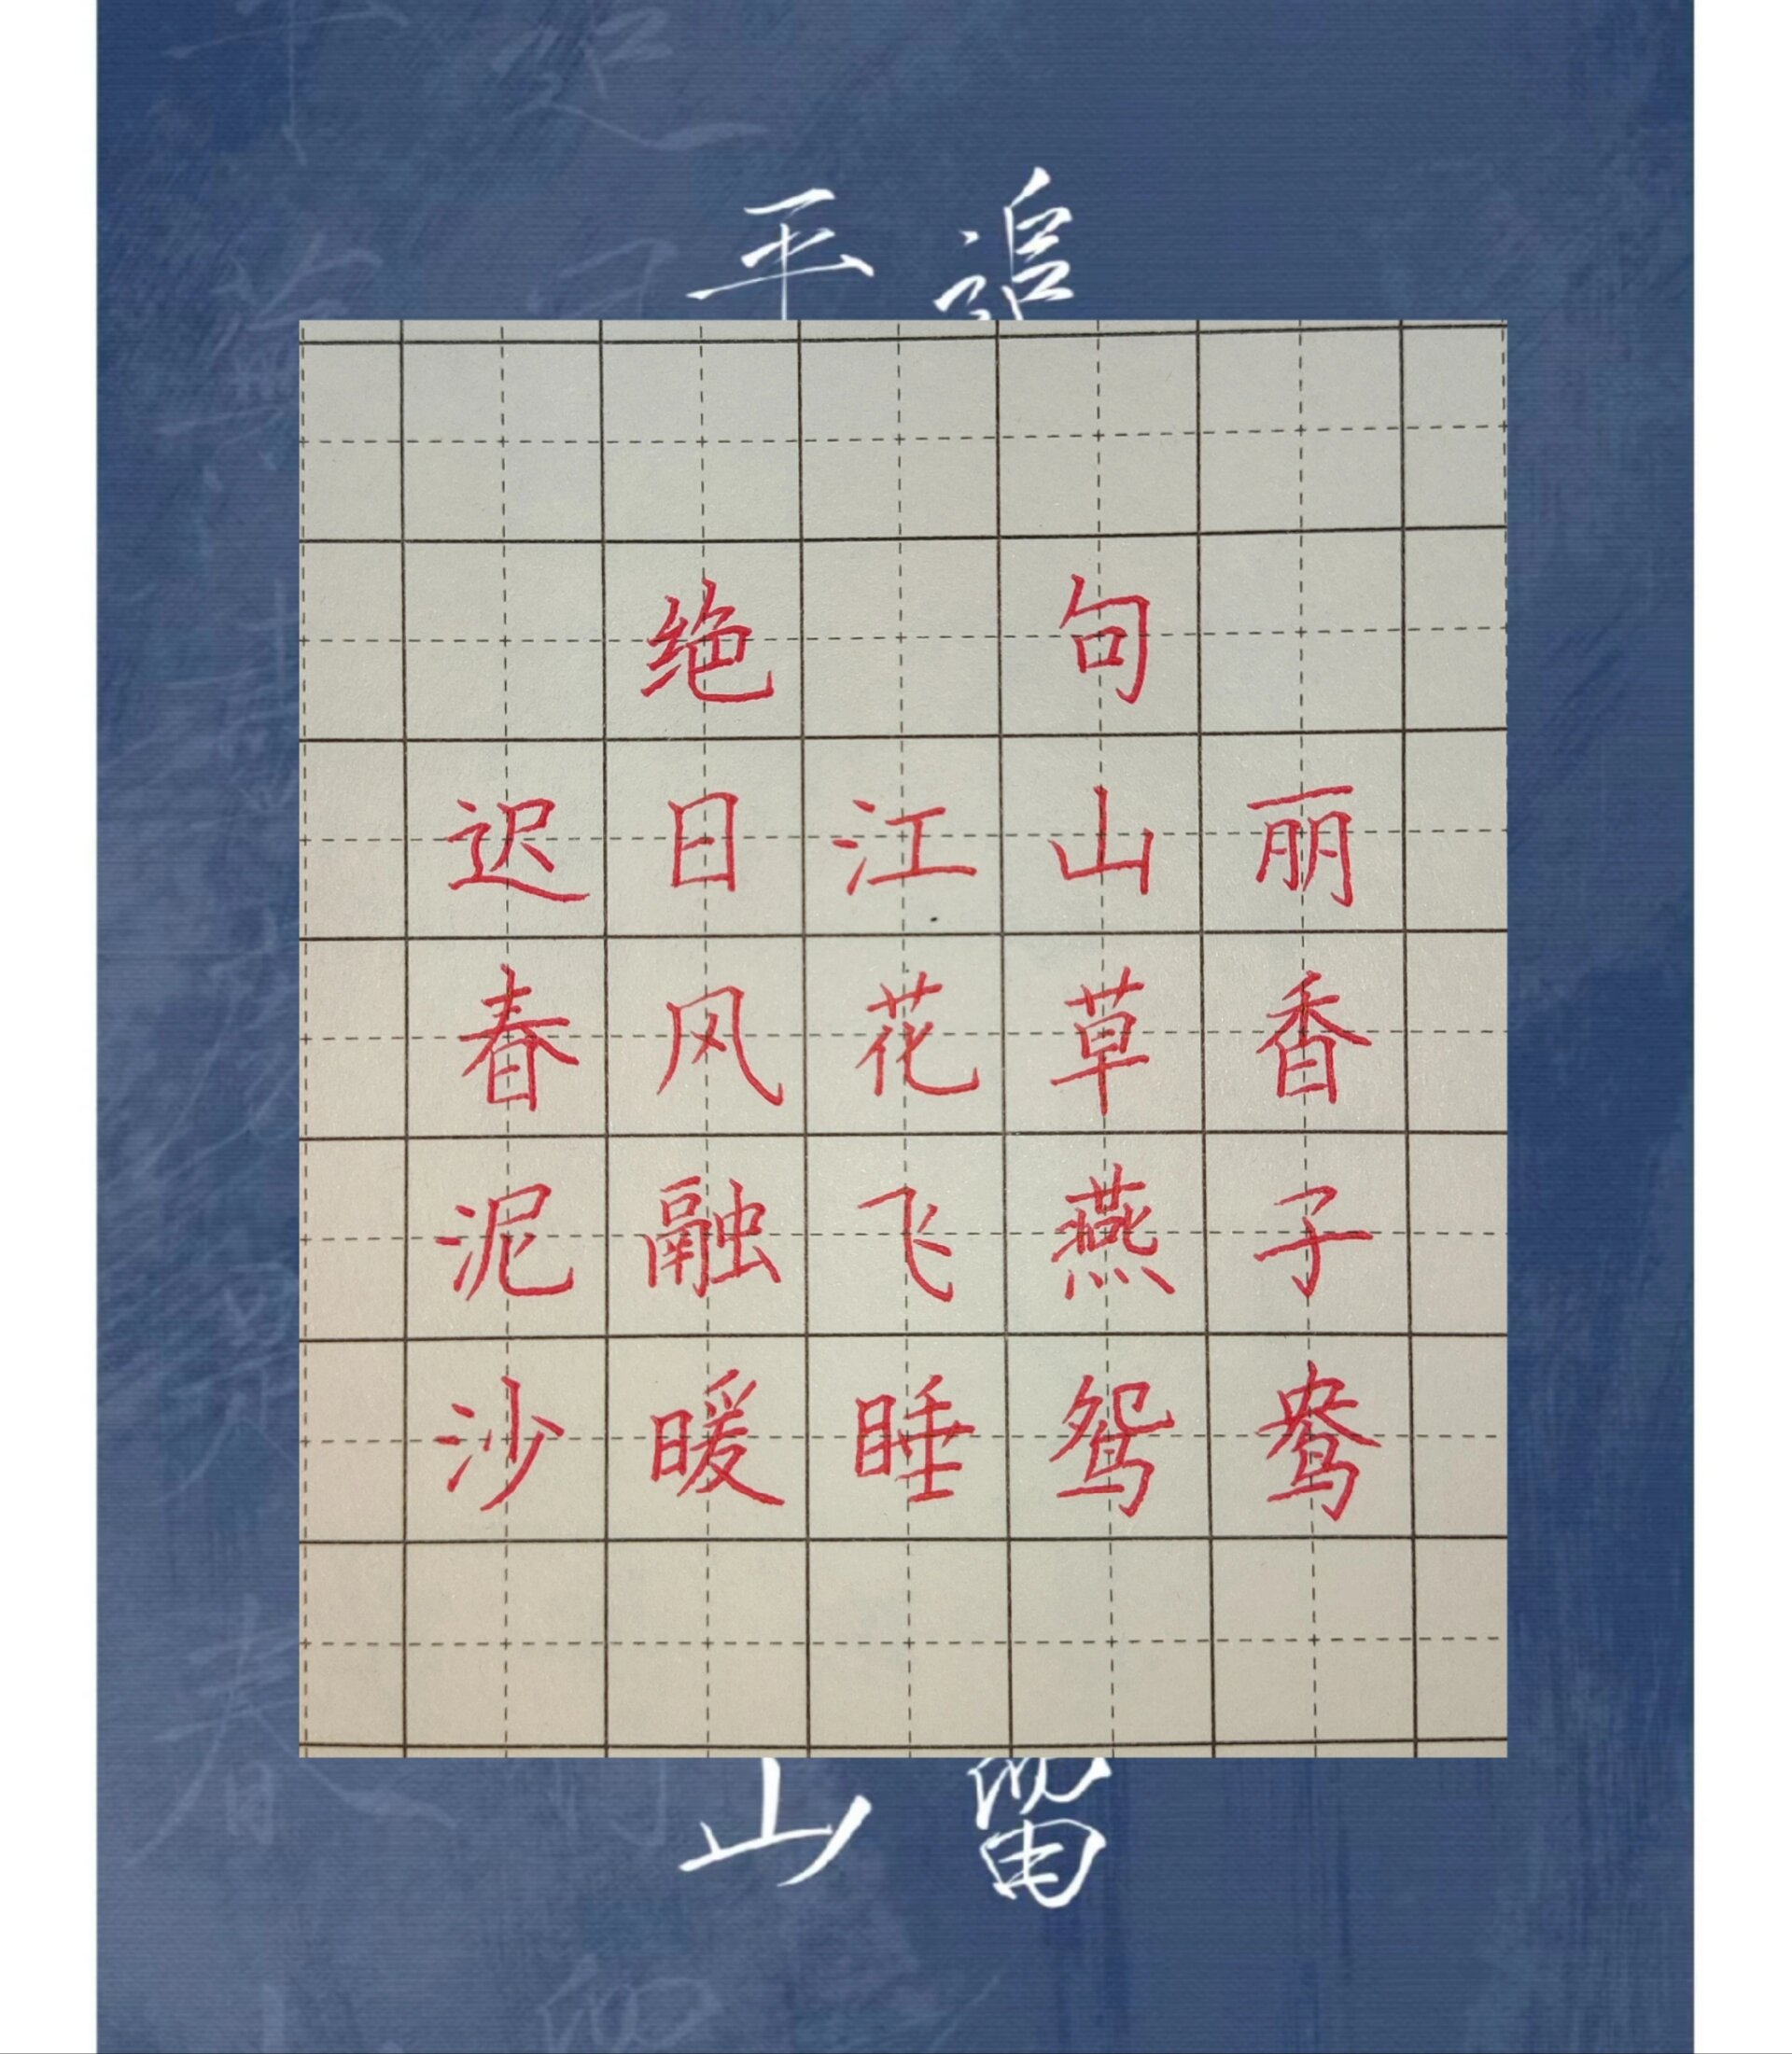 平 追
绝 句
迟日江山丽
春风花草香
泥融飞燕子
沙暖睡鸳鸯
山 留